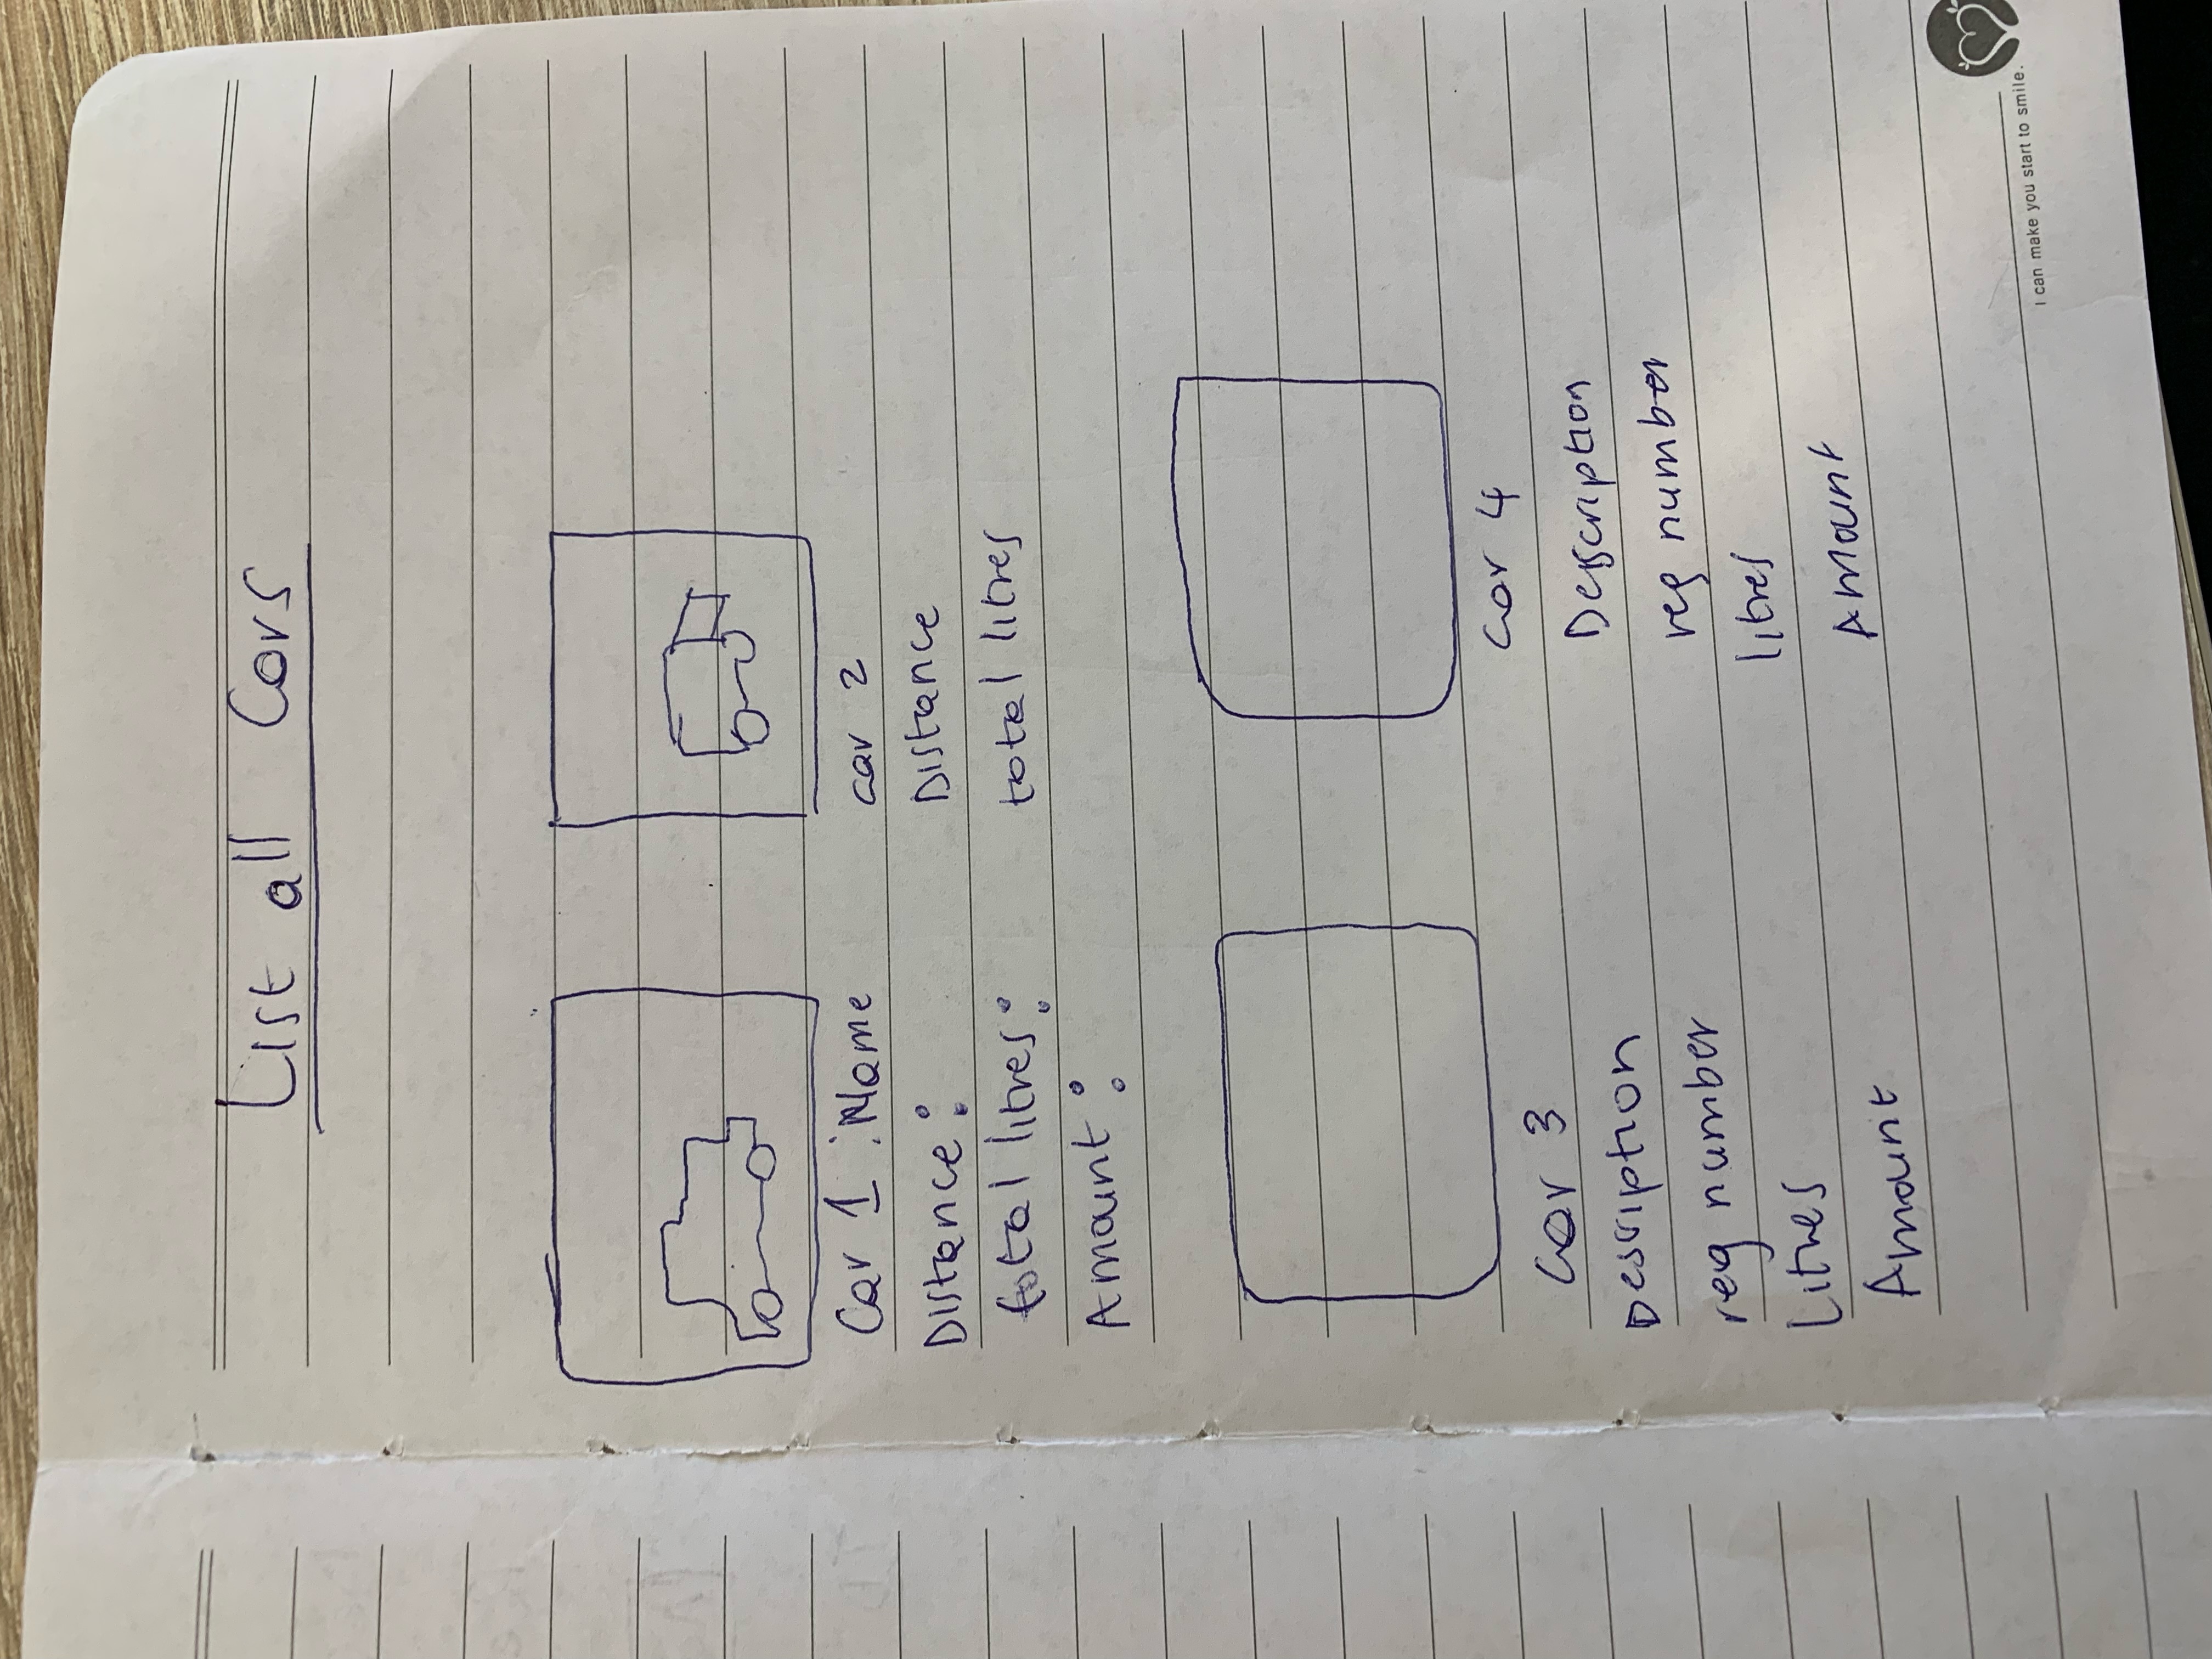 List all Cars
Car 1 : Name
Distance :
total litres :
Amount :
car 2
Distance
total litres
Car 3
Desription
reg number
Litres
Amount
Car 4
Description
reg number
litres
Amount
I can make you start to smile.